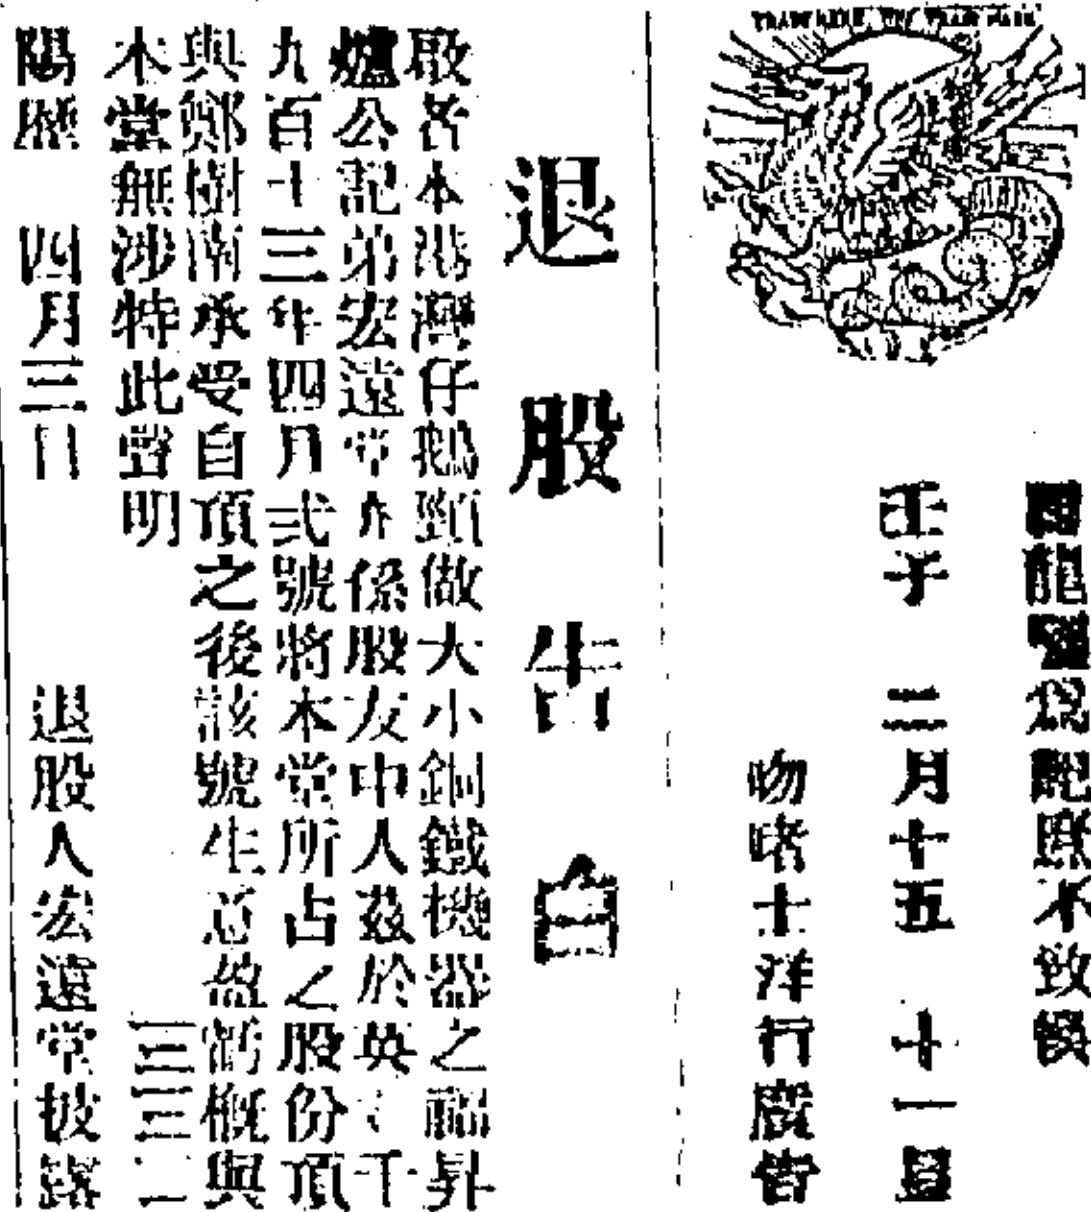 TRADE MARK THE TRADE MARK
龍爲記庶不致悞
壬子 二月十五 十一
吻啫士洋行廣告
退股告白
啟者本港灣仔鵝頸做大小銅鐵機器之福昇
爐公記弟宏遠堂亦係股友中人茲於英一千
九百十三年四月弍號將本堂所占之股份頂
與鄭樹南承受自頂之後該號生意盈虧概與
本堂無涉特此聲明 三三二
陽歷 四月三日 退股人宏遠堂披露